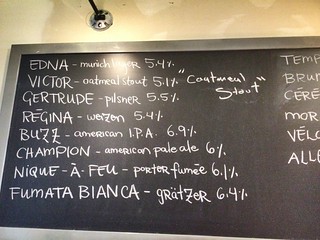 EDNA - munich lager 5.4%
VICTOR - oatmeal stout 5.1% "Coatmeal Stout"
GERTRUDE - pilsner 5.5%
RÉGINA - weizen 5.4%
BUZZ - american I.P.A. 6.9%
CHAMPION - american pale ale 6%
NIQUE-À-FEU - porter fumée 6.1%
FUMATA BIANCA - grätzer 6.4%
TEMP
BRUN
CÉRÉ
MOR
VÉLO
ALLE